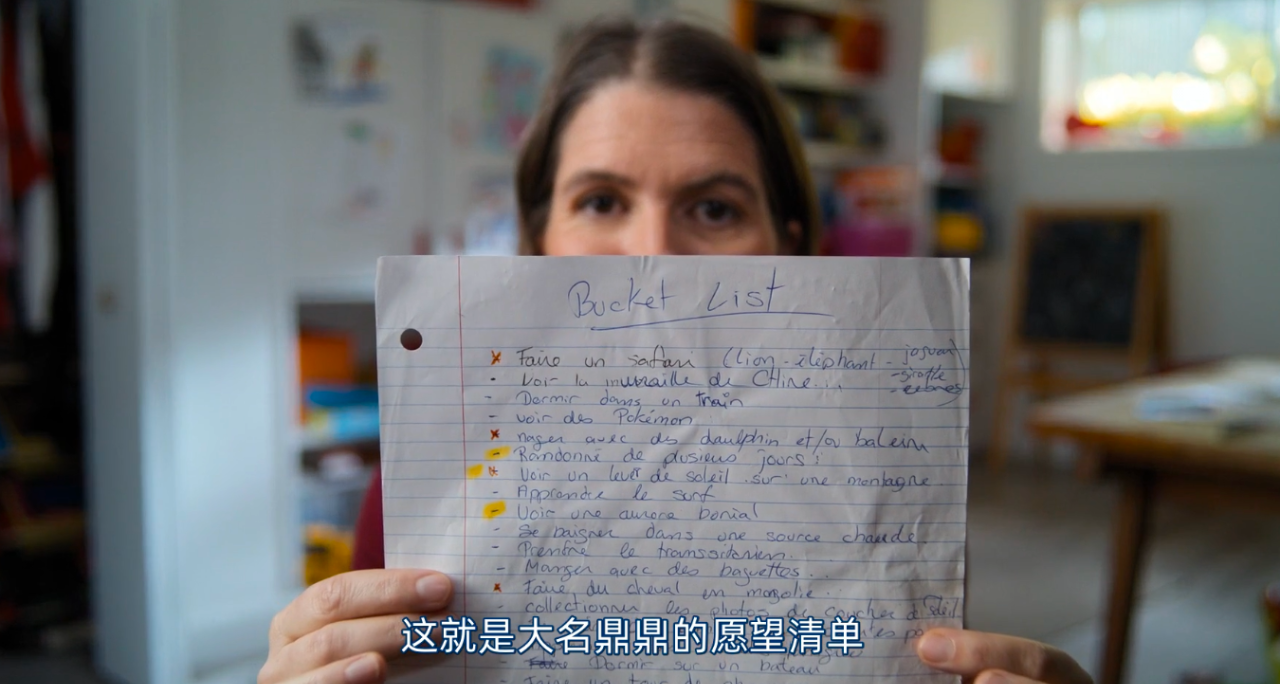 Bucket List
Faire un safari (lion - éléphant - jaguar)
- giraffe
- zèbres
- Voir la muraille de Chine...
- Dormir dans un train
- voir des Pokémon
nager avec des dauphin et/ou balein
- Randonné de plusieus jours :
Voir un lever de soleil sur une montagne
- Apprendre le surf
- Voir une aurore borial
- Se baigner dans une source chaude.
- Prendre le transsiberien.
- Manger avec des baguettes...
Faire du cheval en mongolie...
- collectionner les photos de coucher de soleil
这就是大名鼎鼎的愿望清单
- Dormir sur un bateau